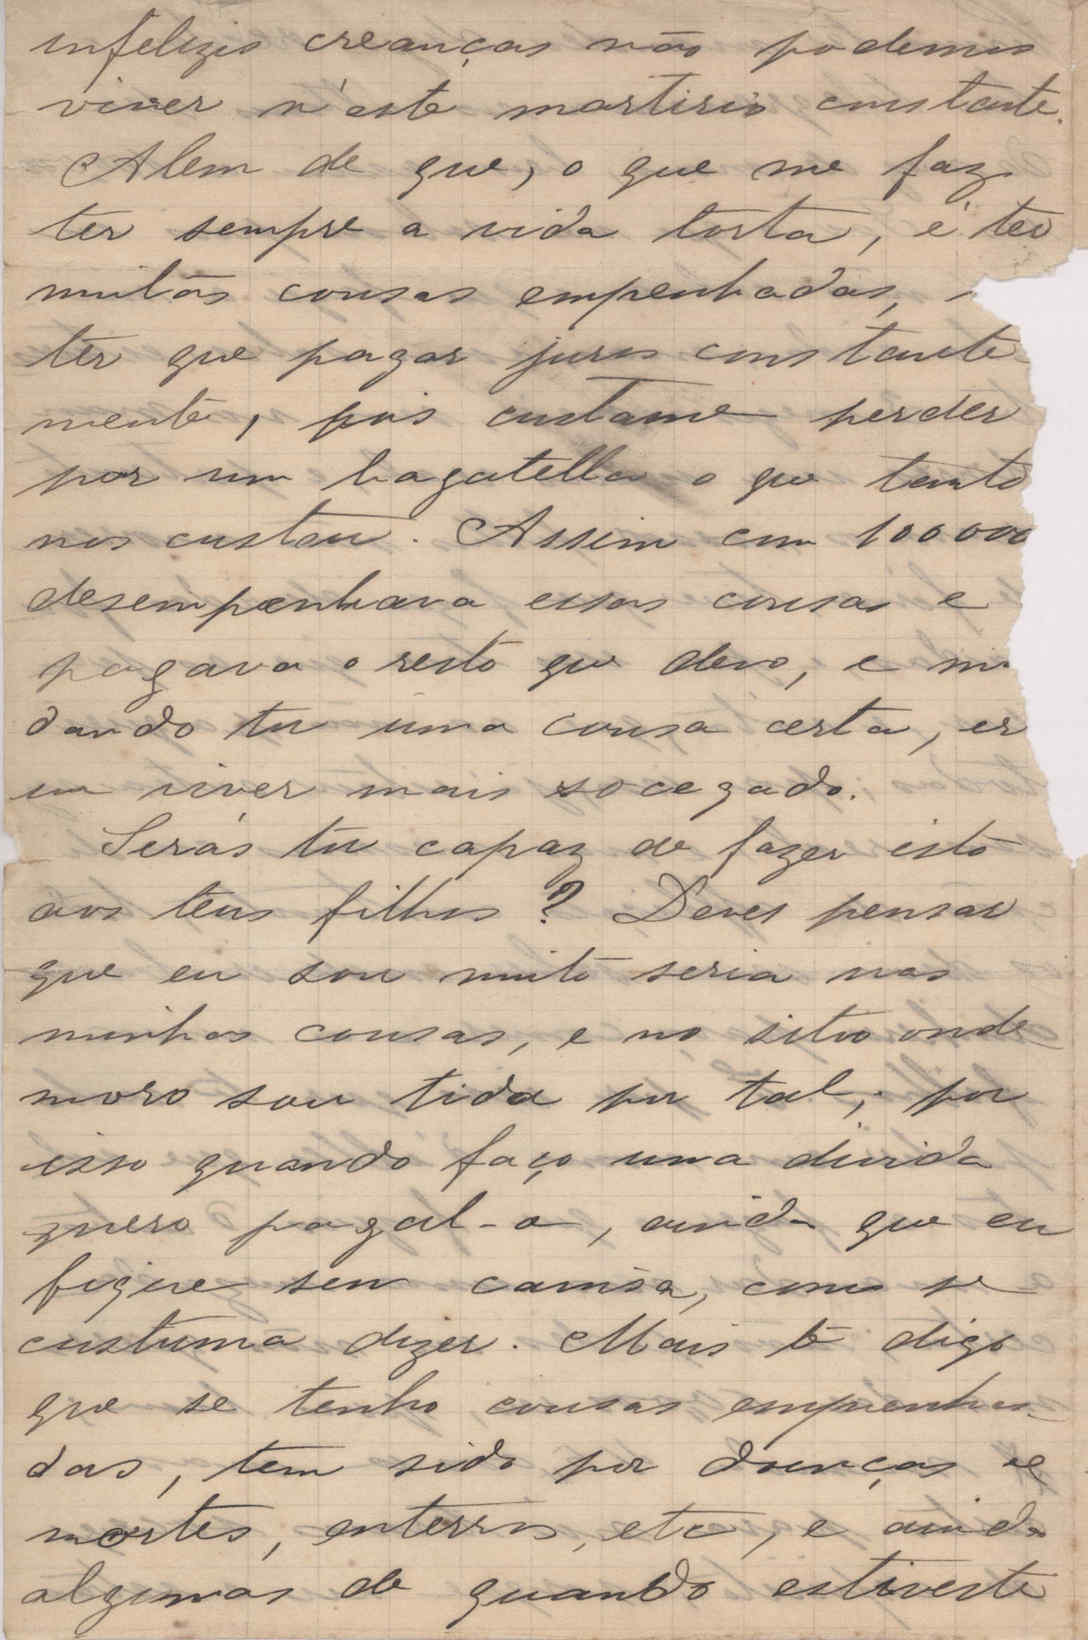 infelizis creanças não podemos
viver n'este martirio constante.
Alem de que, o que me faz
ter sempre a vida torta, é ter
muitas cousas empenhadas,
ter que pagar juros constante
mente, pois custame perder
por um bagatella o que tanto
nos custou. Assim com 100000
desempenhava essas cousas e
pagava o resto que devo, e man
dando tu uma cousa certa, er
um viver mais socegado.
Serás tu capaz de fazer isto
aos teus filhos? Deves pensar
que eu sou muito seria nas
minhas cousas, e no sitio onde
moro sou tida por tal, por
isso quando faço uma divida
quero pagal-a, ainda que eu
fique sem camisa, como se
custuma dizer. Mais te digo
que se tenho cousas empenha-
das, tem sido por doenças e
mortes, enterros, etc, e ainda
algumas de quando estiveste